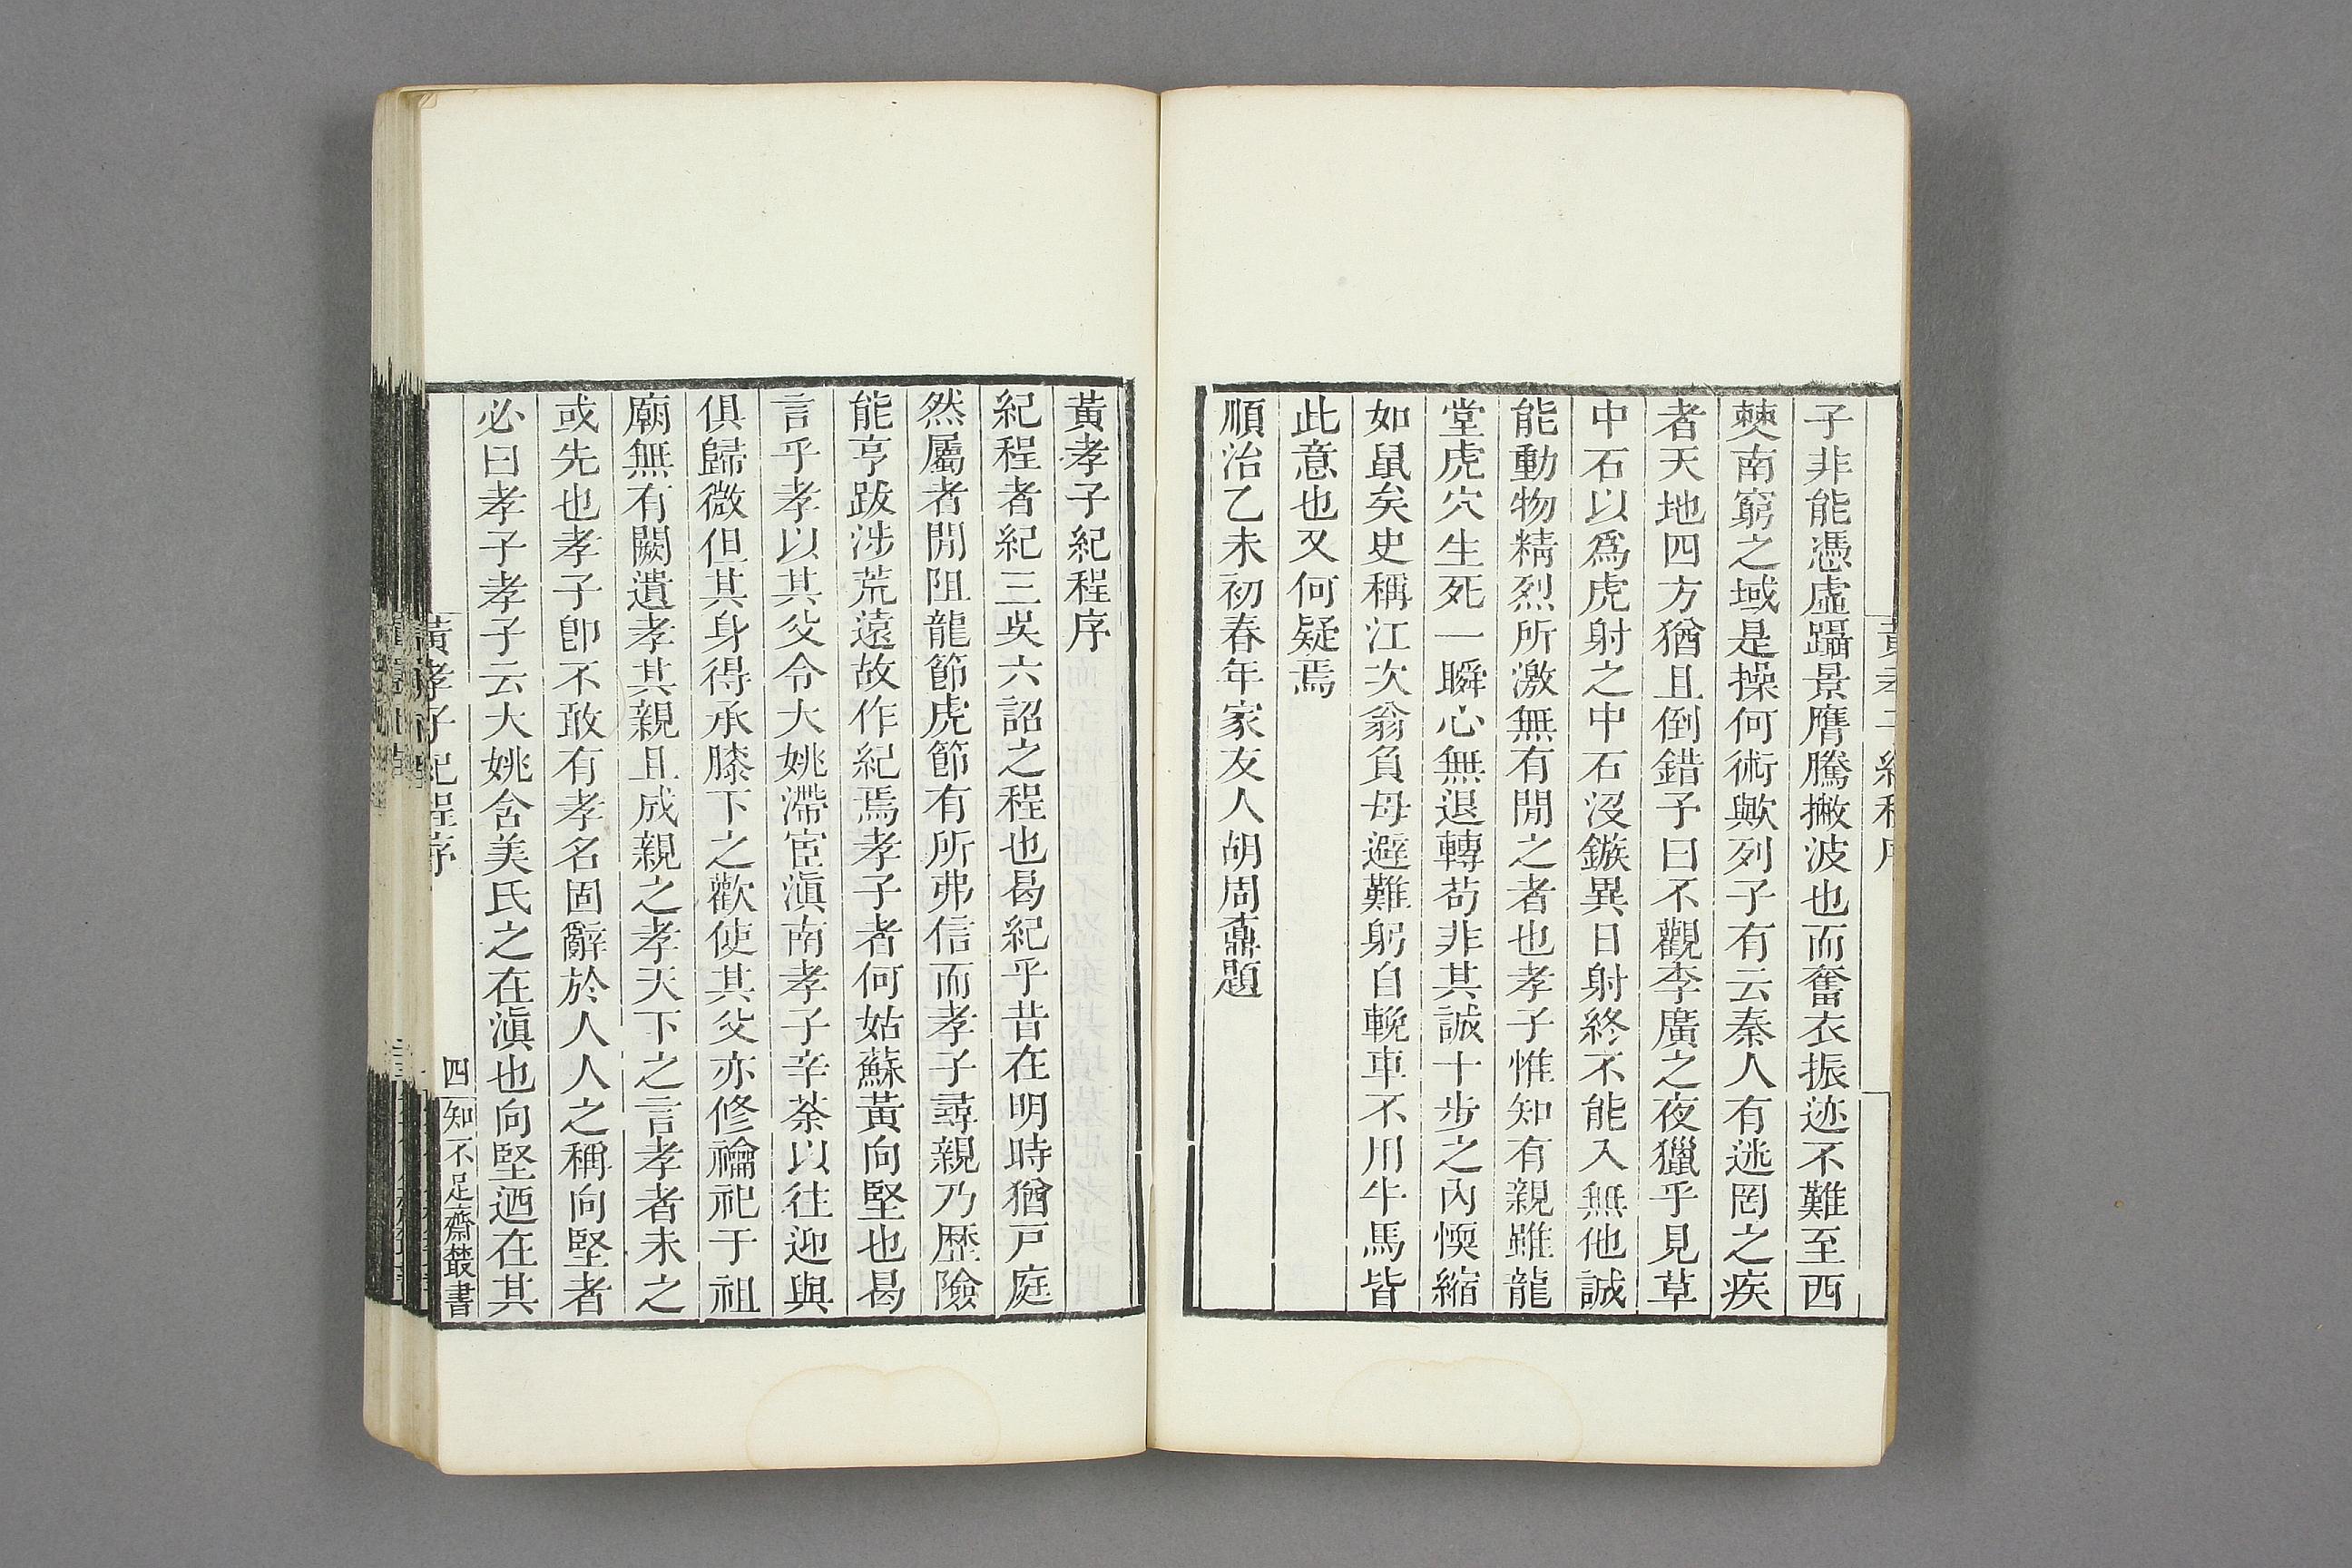 子非能憑虛躡景膺騰撇波也而奮衣振迹不難至西
僰南窮之域是操何術歟列子有云秦人有迷罔之疾
者天地四方猶且倒錯予曰不觀李廣之夜獵乎見草
中石以爲虎射之中石沒鏃異日射終不能入無他誠
能動物精烈所激無有閒之者也孝子惟知有親雖龍
堂虎穴生死一瞬心無退轉苟非其誠十步之內愞縮
如鼠矣史稱江次翁負母避難躬自輓車不用牛馬皆
此意也又何疑焉
順治乙未初春年家友人胡周鼒題
黃孝子紀程序
紀程者紀三吳六詔之程也曷紀乎昔在明時猶戸庭
然屬者閒阻龍節虎節有所弗信而孝子尋親乃歷險
能亨跋涉荒遠故作紀焉孝子者何姑蘇黃向堅也曷
言乎孝以其父令大姚滯宦滇南孝子辛荼以往迎與
俱歸微但其身得承膝下之歡使其父亦修禴祀于祖
廟無有闕遺孝其親且成親之孝天下之言孝者未之
或先也孝子卽不敢有孝名固辭於人人之稱向堅者
必曰孝子孝子云大姚含美氏之在滇也向堅迺在其
黃孝子紀程序
四
知不足齋叢書